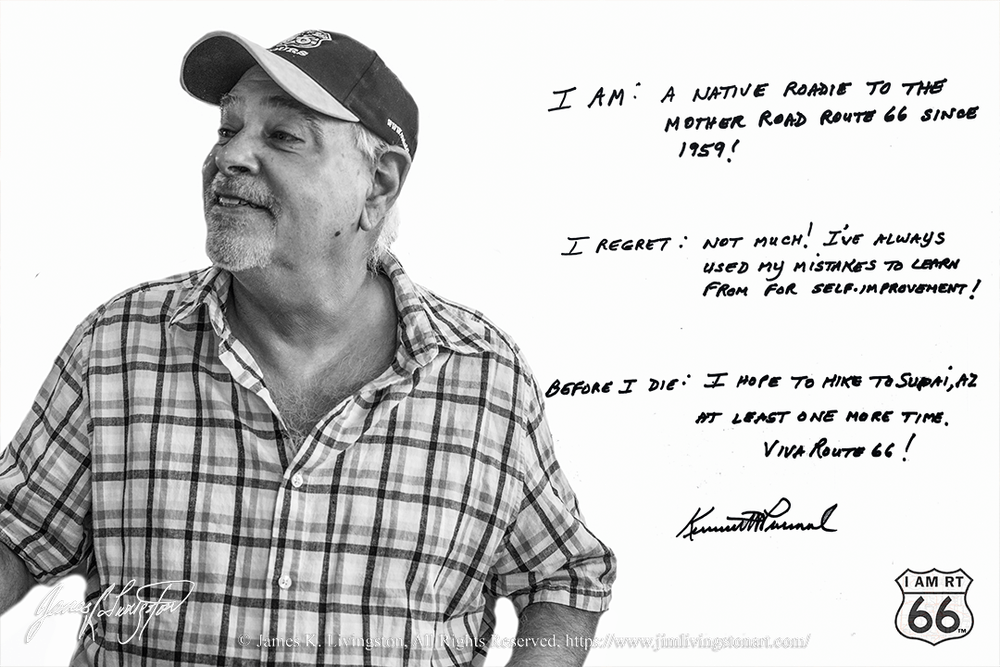 I AM: A NATIVE ROADIE TO THE
MOTHER ROAD ROUTE 66 SINCE
1959!
I REGRET: NOT MUCH! I'VE ALWAYS
USED MY MISTAKES TO LEARN
FROM FOR SELF-IMPROVEMENT!
BEFORE I DIE: I HOPE TO HIKE TO SUPAI, AZ
AT LEAST ONE MORE TIME.
VIVA ROUTE 66!
I AM RT
66
TM
James K. Livingston
© James K. Livingston, All Rights Reserved, https://www.jimlivingstonart.com/